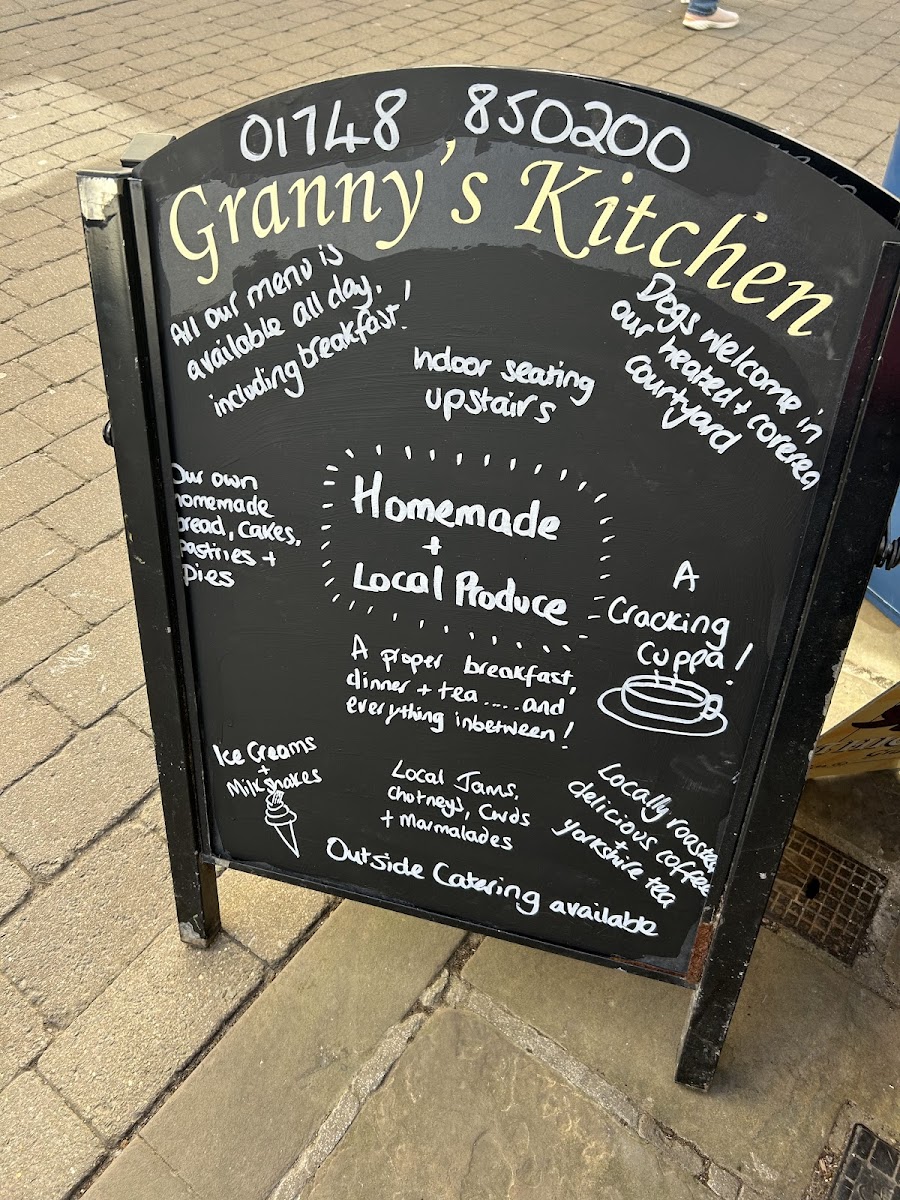 01748 850200
Granny's Kitchen
All our menu is
available all day,
including breakfast!
Indoor seating
upstairs
Dogs welcome in
our heated + covered
courtyard
Our own
homemade
bread, cakes,
pastries +
pies
Homemade
+
Local Produce
A
Cracking
Cuppa!
A proper breakfast,
dinner + tea.....and
everything inbetween!
Ice Creams
+
Milkshakes
Local Jams,
Chutneys, Curds
+ Marmalades
Locally roasted
delicious coffee
+
Yorkshire tea
Outside Catering available